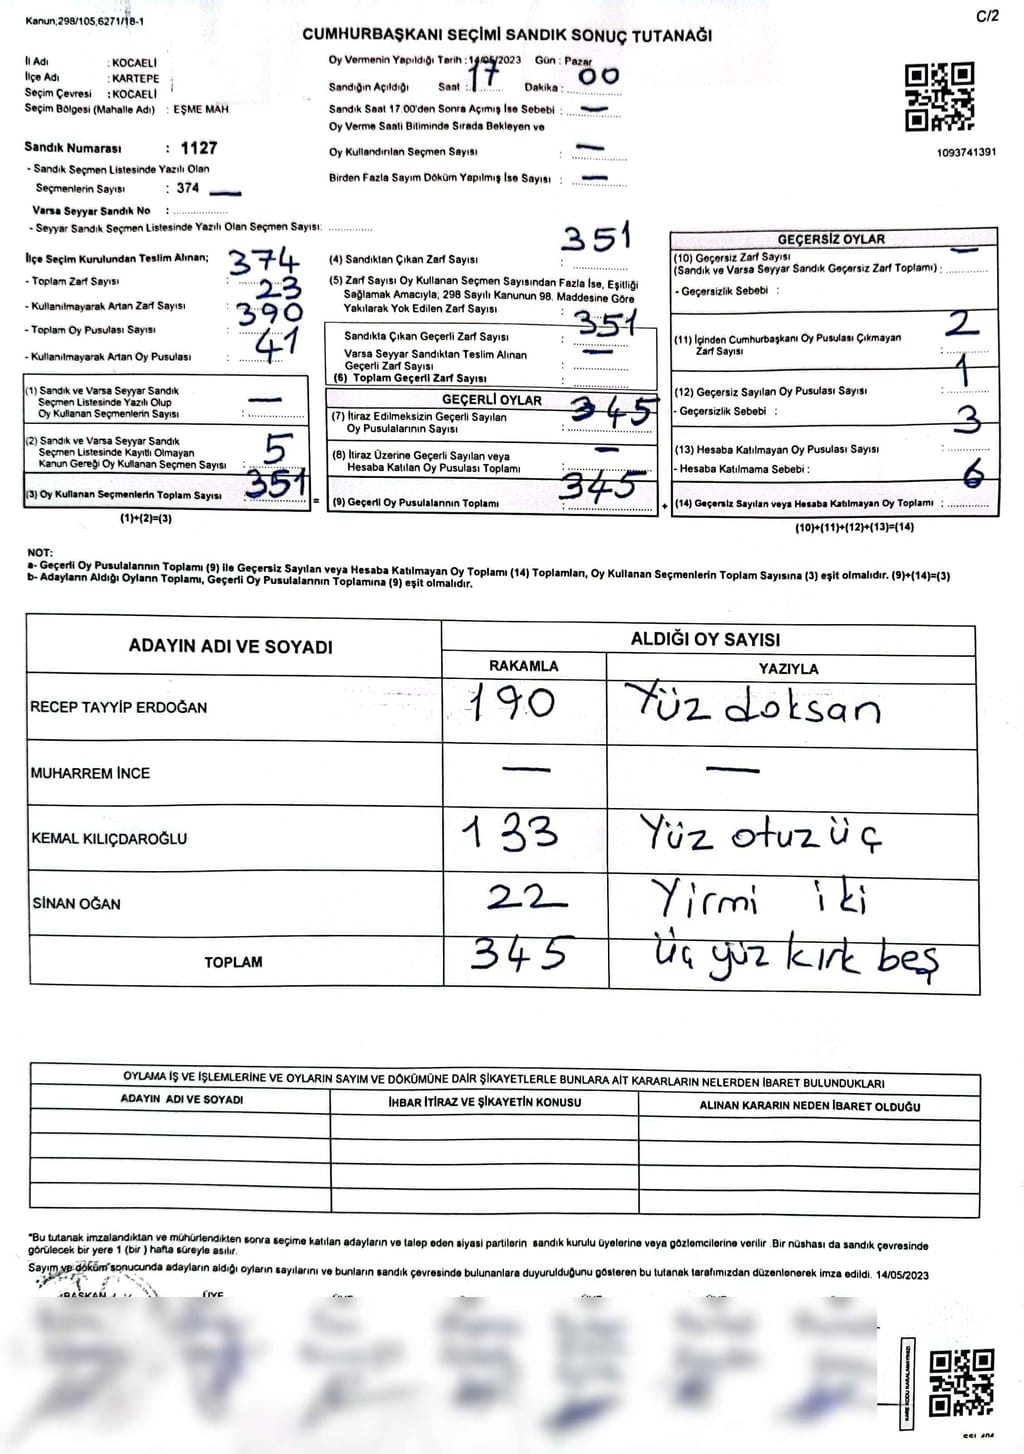 Kanun,298/105,6271/18-1
C/2
CUMHURBAŞKANI SEÇİMİ SANDIK SONUÇ TUTANAĞI
İl Adı : KOCAELİ
İlçe Adı : KARTEPE
Seçim Çevresi : KOCAELİ
Seçim Bölgesi (Mahalle Adı) : EŞME MAH
Oy Vermenin Yapıldığı Tarih : 14/05/2023 Gün : Pazar
Sandığın Açıldığı Saat : 17 Dakika : 00
Sandık Saat 17.00'den Sonra Açımış İse Sebebi : —
Oy Verme Saati Bitiminde Sırada Bekleyen ve
Oy Kullandırılan Seçmen Sayısı : —
Birden Fazla Sayım Döküm Yapılmış İse Sayısı : —
1093741391
Sandık Numarası : 1127
- Sandık Seçmen Listesinde Yazılı Olan
Seçmenlerin Sayısı : 374 —
Varsa Seyyar Sandık No : ..................
- Seyyar Sandık Seçmen Listesinde Yazılı Olan Seçmen Sayısı: ..............
İlçe Seçim Kurulundan Teslim Alınan;
- Toplam Zarf Sayısı : 374
- Kullanılmayarak Artan Zarf Sayısı : 23
- Toplam Oy Pusulası Sayısı : 390
- Kullanılmayarak Artan Oy Pusulası : 41
(1) Sandık ve Varsa Seyyar Sandık
Seçmen Listesinde Yazılı Olup
Oy Kullanan Seçmenlerin Sayısı : —
(2) Sandık ve Varsa Seyyar Sandık
Seçmen Listesinde Kayıtlı Olmayan
Kanun Gereği Oy Kullanan Seçmen Sayısı : 5
(3) Oy Kullanan Seçmenlerin Toplam Sayısı : 351
(1)+(2)=(3)
(4) Sandıktan Çıkan Zarf Sayısı : 351
(5) Zarf Sayısı Oy Kullanan Seçmen Sayısından Fazla İse, Eşitliği
Sağlamak Amacıyla; 298 Sayılı Kanunun 98. Maddesine Göre
Yakılarak Yok Edilen Zarf Sayısı :
Sandıkta Çıkan Geçerli Zarf Sayısı : 351
Varsa Seyyar Sandıktan Teslim Alınan
Geçerli Zarf Sayısı : —
(6) Toplam Geçerli Zarf Sayısı :
=
GEÇERLİ OYLAR
(7) İtiraz Edilmeksizin Geçerli Sayılan
Oy Pusulalarının Sayısı : 345
(8) İtiraz Üzerine Geçerli Sayılan veya
Hesaba Katılan Oy Pusulası Toplamı : —
(9) Geçerli Oy Pusulalarının Toplamı : 345
+
GEÇERSİZ OYLAR
(10) Geçersiz Zarf Sayısı —
(Sandık ve Varsa Seyyar Sandık Geçersiz Zarf Toplamı) : ..............
- Geçersizlik Sebebi :
(11) İçinden Cumhurbaşkanı Oy Pusulası Çıkmayan
Zarf Sayısı : 2
(12) Geçersiz Sayılan Oy Pusulası Sayısı : 1
- Geçersizlik Sebebi :
(13) Hesaba Katılmayan Oy Pusulası Sayısı : 3
- Hesaba Katılmama Sebebi :
(14) Geçersiz Sayılan veya Hesaba Katılmayan Oy Toplamı : 6
(10)+(11)+(12)+(13)=(14)
NOT:
a- Geçerli Oy Pusulalarının Toplamı (9) ile Geçersiz Sayılan veya Hesaba Katılmayan Oy Toplamı (14) Toplamları, Oy Kullanan Seçmenlerin Toplam Sayısına (3) eşit olmalıdır. (9)+(14)=(3)
b- Adayların Aldığı Oyların Toplamı, Geçerli Oy Pusulalarının Toplamına (9) eşit olmalıdır.
ADAYIN ADI VE SOYADI
ALDIĞI OY SAYISI
RAKAMLA YAZIYLA
RECEP TAYYİP ERDOĞAN 190 Yüz doksan
MUHARREM İNCE — —
KEMAL KILIÇDAROĞLU 133 Yüz otuz üç
SİNAN OĞAN 22 Yirmi iki
TOPLAM 345 Üç yüz kırk beş
OYLAMA İŞ VE İŞLEMLERİNE VE OYLARIN SAYIM VE DÖKÜMÜNE DAİR ŞİKAYETLERLE BUNLARA AİT KARARLARIN NELERDEN İBARET BULUNDUKLARI
ADAYIN ADI VE SOYADI İHBAR İTİRAZ VE ŞİKAYETİN KONUSU ALINAN KARARIN NEDEN İBARET OLDUĞU
*Bu tutanak imzalandıktan ve mühürlendikten sonra seçime katılan adayların ve talep eden siyasi partilerin sandık kurulu üyelerine veya gözlemcilerine verilir .Bir nüshası da sandık çevresinde
görülecek bir yere 1 (bir ) hafta süreyle asılır.
Sayım ve döküm sonucunda adayların aldığı oyların sayılarını ve bunların sandık çevresinde bulunanlara duyurulduğunu gösteren bu tutanak tarafımızdan düzenlenerek imza edildi. 14/05/2023
BAŞKAN ÜYE
KARE KODU KARALAMAYINIZ!